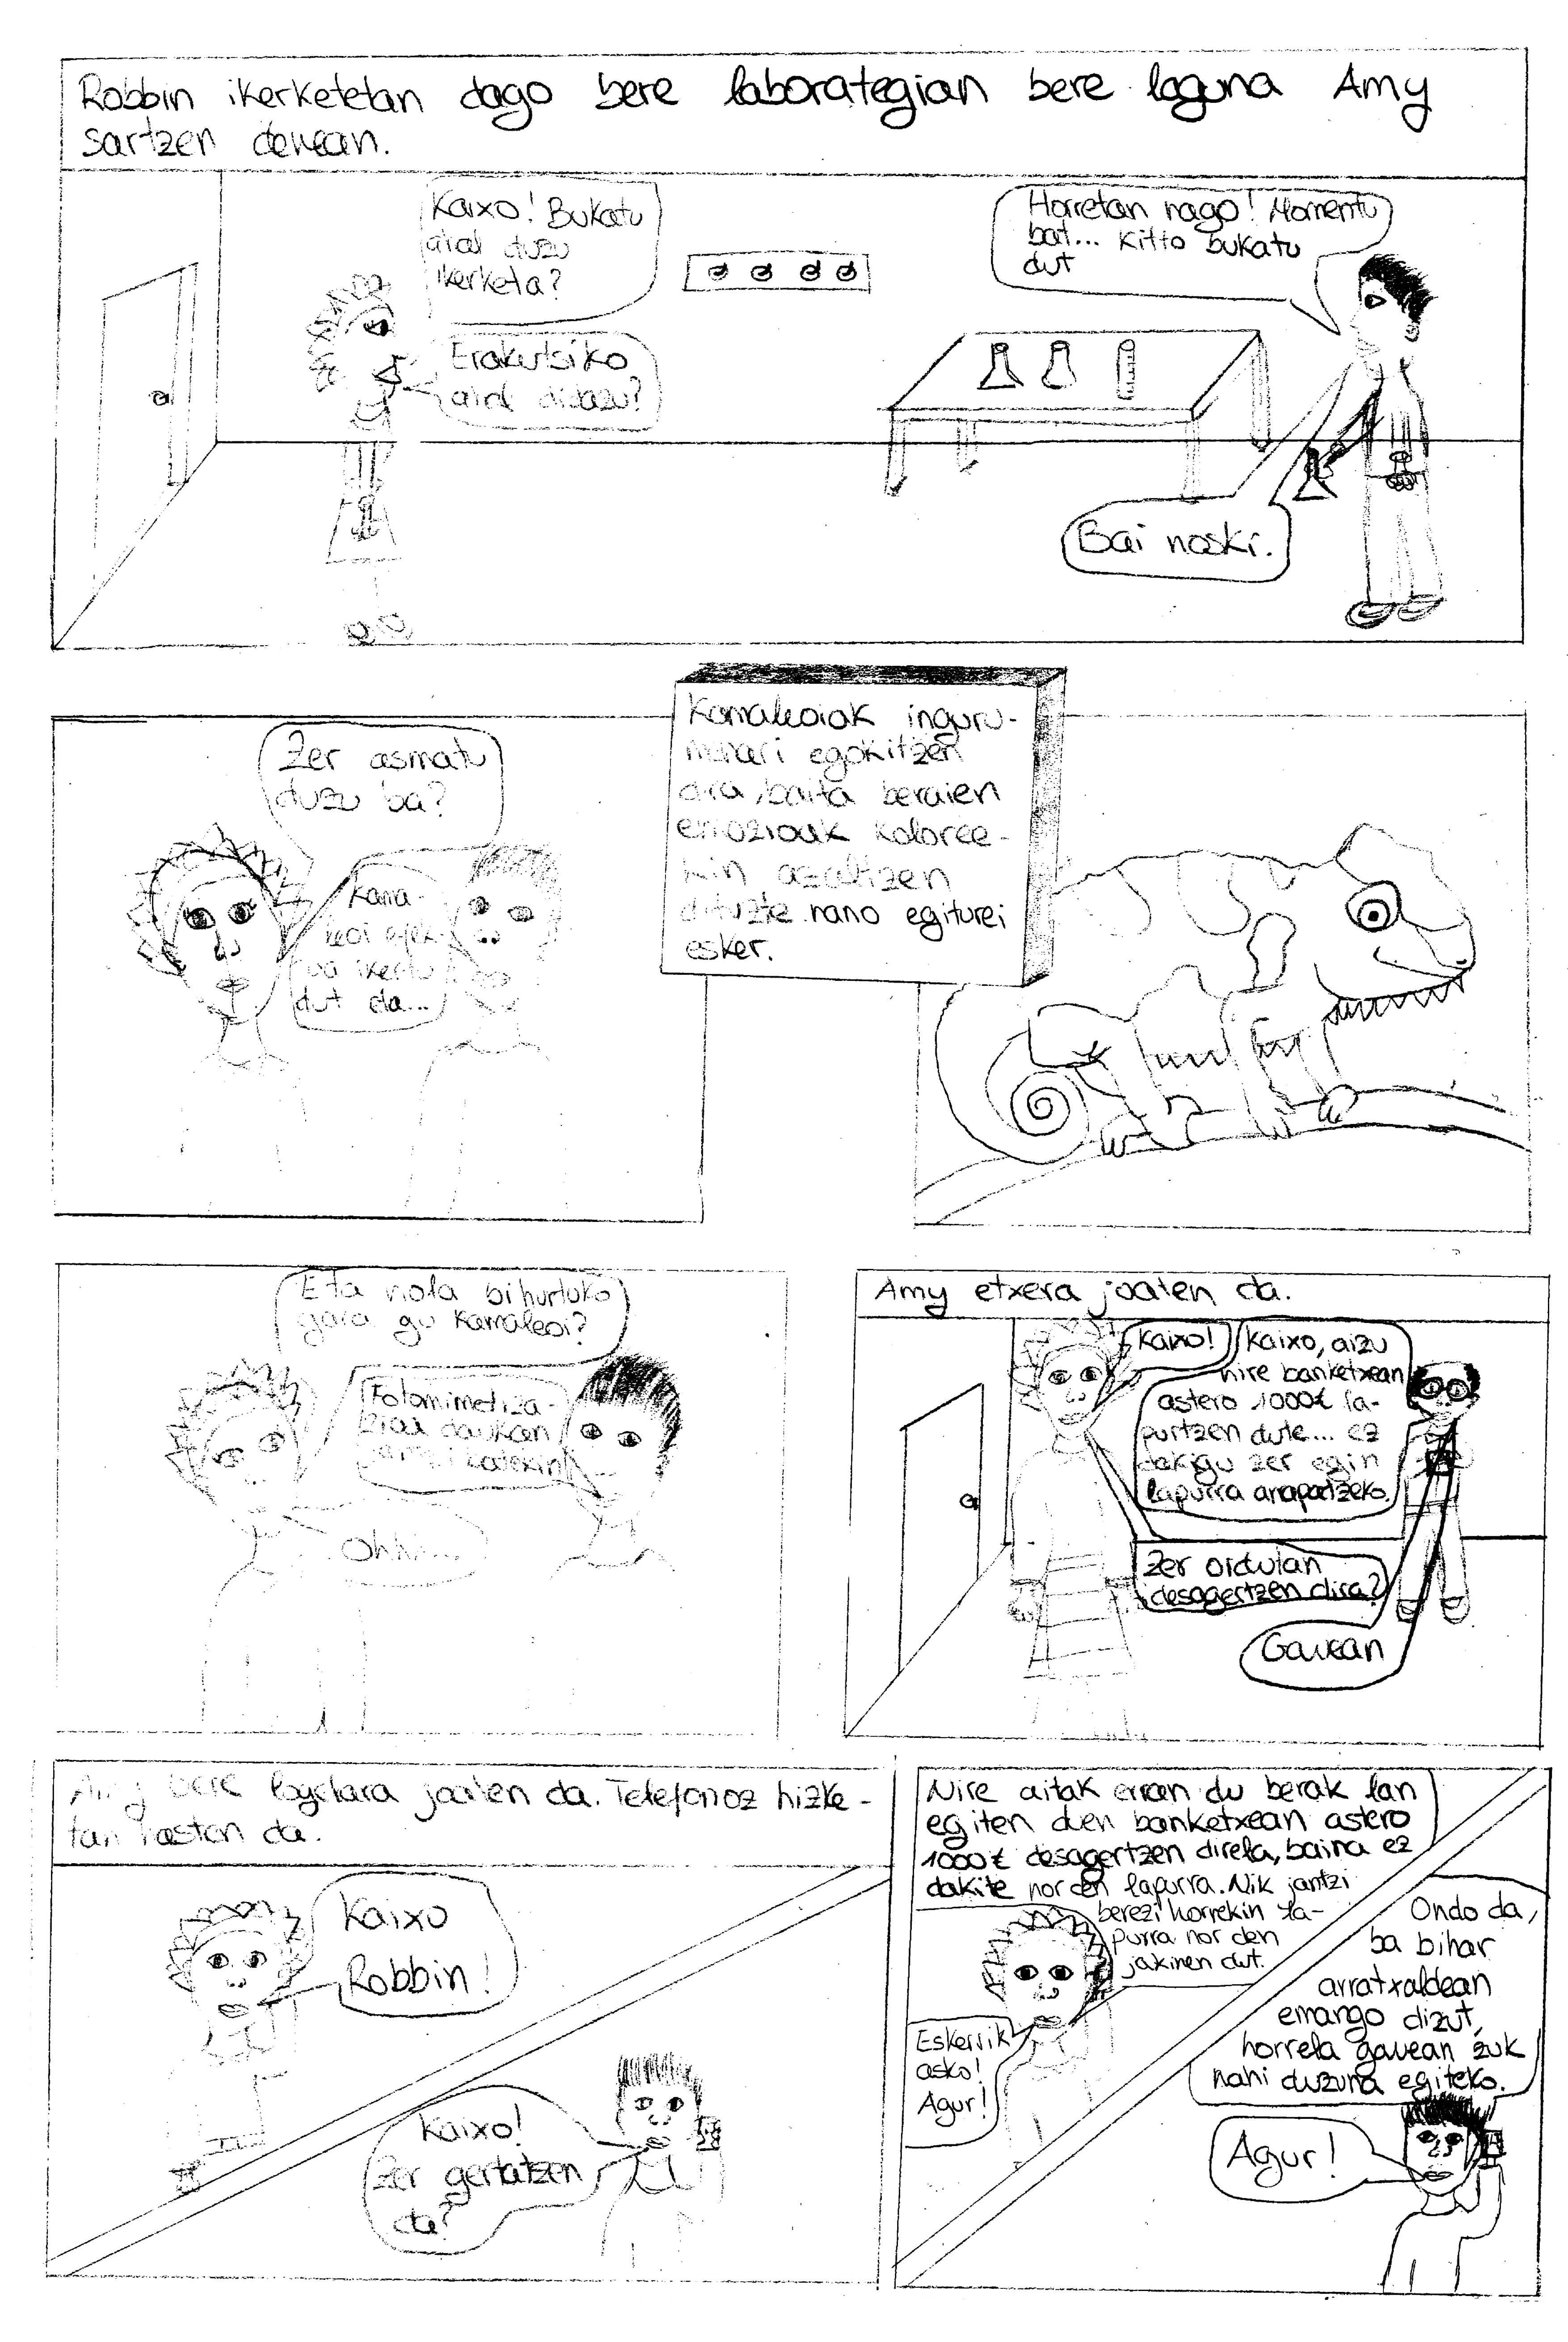 Robbin ikerketetan dago bere laborategian bere laguna Amy
sartzen denean.
Kaixo! Bukatu
al duzu
ikerketa?
Horretan nago! Momentu
bat... Kitto bukatu
dut
Erakutsiko
didazu?
Bai noski.
Zer asmatu
duzu ba?
Kama-
leoi
ikertu
dut da...
Kamaleoiak inguru-
egokitzen
dira, baita beraien
emozioak koloree-
kin azaltzen
dituzte nano egiturei
esker.
Eta nola bihurtuko
gara gu kamaleoi?
Fotomimetiza-
zioa daukan
Ohh....
Amy etxera joaten da.
Kaixo!
Kaixo, aizu
nire banketxean
astero 1000€ la-
purtzen dute... ez
dakigu zer egin
lapurra arrapatzeko.
Zer ordutan
desagertzen dira?
Gauean
Amy bere logelara joaten da. Telefonoz hizke-
tan hasten da.
Kaixo
Robbin!
Kaixo!
Zer gertatzen
da?
Nire aitak erran du berak lan
egiten duen banketxean astero
1000€ desagertzen direla, baina ez
dakite nor den lapurra. Nik jantzi
berezi horrekin la-
purra nor den
jakinen dut.
Ondo da,
ba bihar
arratxaldean
emango dizut,
horrela gauean zuk
nahi duzuna egiteko.
Eskerrik
asko!
Agur!
Agur!